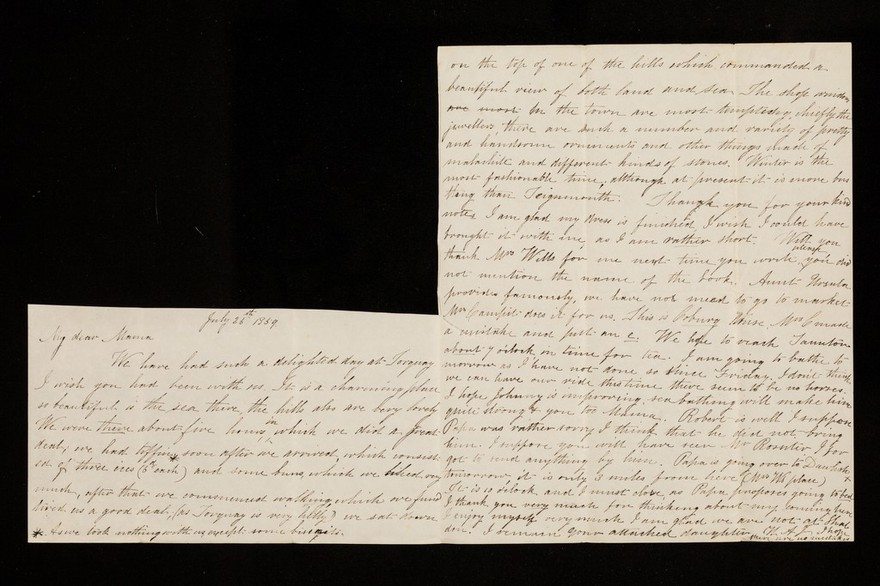 July 26th 1859.
My dear Mama
We have had such a delighted day at Torquay
I wish you had been with us It is a charming place
so beautiful, is the sea there, the hills also are very lovely
We were there about five hours, in which we did a great
deal, we had tiffin * soon after we arrived, which consist-
ed of three ices (6d each) and some buns, which we liked very
much, after that we commenced walking, which we found
tired us a good deal, (as Torquay is very hilly) we sat down
* As we took nothing with us except some biscuits.
on the top of one of the hills which commanded a
beautiful view of both land and sea. The shop windows
are most in the town are most tempting, chiefly the
jewellers, there are such a number and variety of pretty
and handsome ornaments and other things made of
malachite and different kinds of stones. Winter is the
most fashionable time, although at present it is more bus
tling than Teignmouth. Thank you for your kind
note, I am glad my dress is finished, I wish I could have
brought it with me, as I am rather short. Will you
please
thank Mrs Wills for me next time you write, you did
not mention the name of the book. Aunt Ursula
provides famously, we have not need to go to market
Mrs does it for us. This is Coburg House, Mrs C made
a mistake and put an e. We hope to reach Taunton
about 7 o'clock, in time for tea. I am going to bathe to
morrow as I have not done so since Friday, I dont think
we can have our ride this time there seem to be no horses.
I hope Johnny is improving, sea bathing will make him
quite strong & you too Mama. Robert is well I suppose
Papa was rather sorry I think that he did not bring
him. I suppose you will have seen Mr I for
got to send anything by him. Papa is going over to Dawlish
tomorrow, it is only 3 miles from here (Mrs place) &
It is 10 o'clock and I must close, as Papa proposes going to bed
I thank you very much for thinking about my coming here
I enjoy myself very much I am glad we are not at that
door. I remain your attached daughter
there are no mistakes